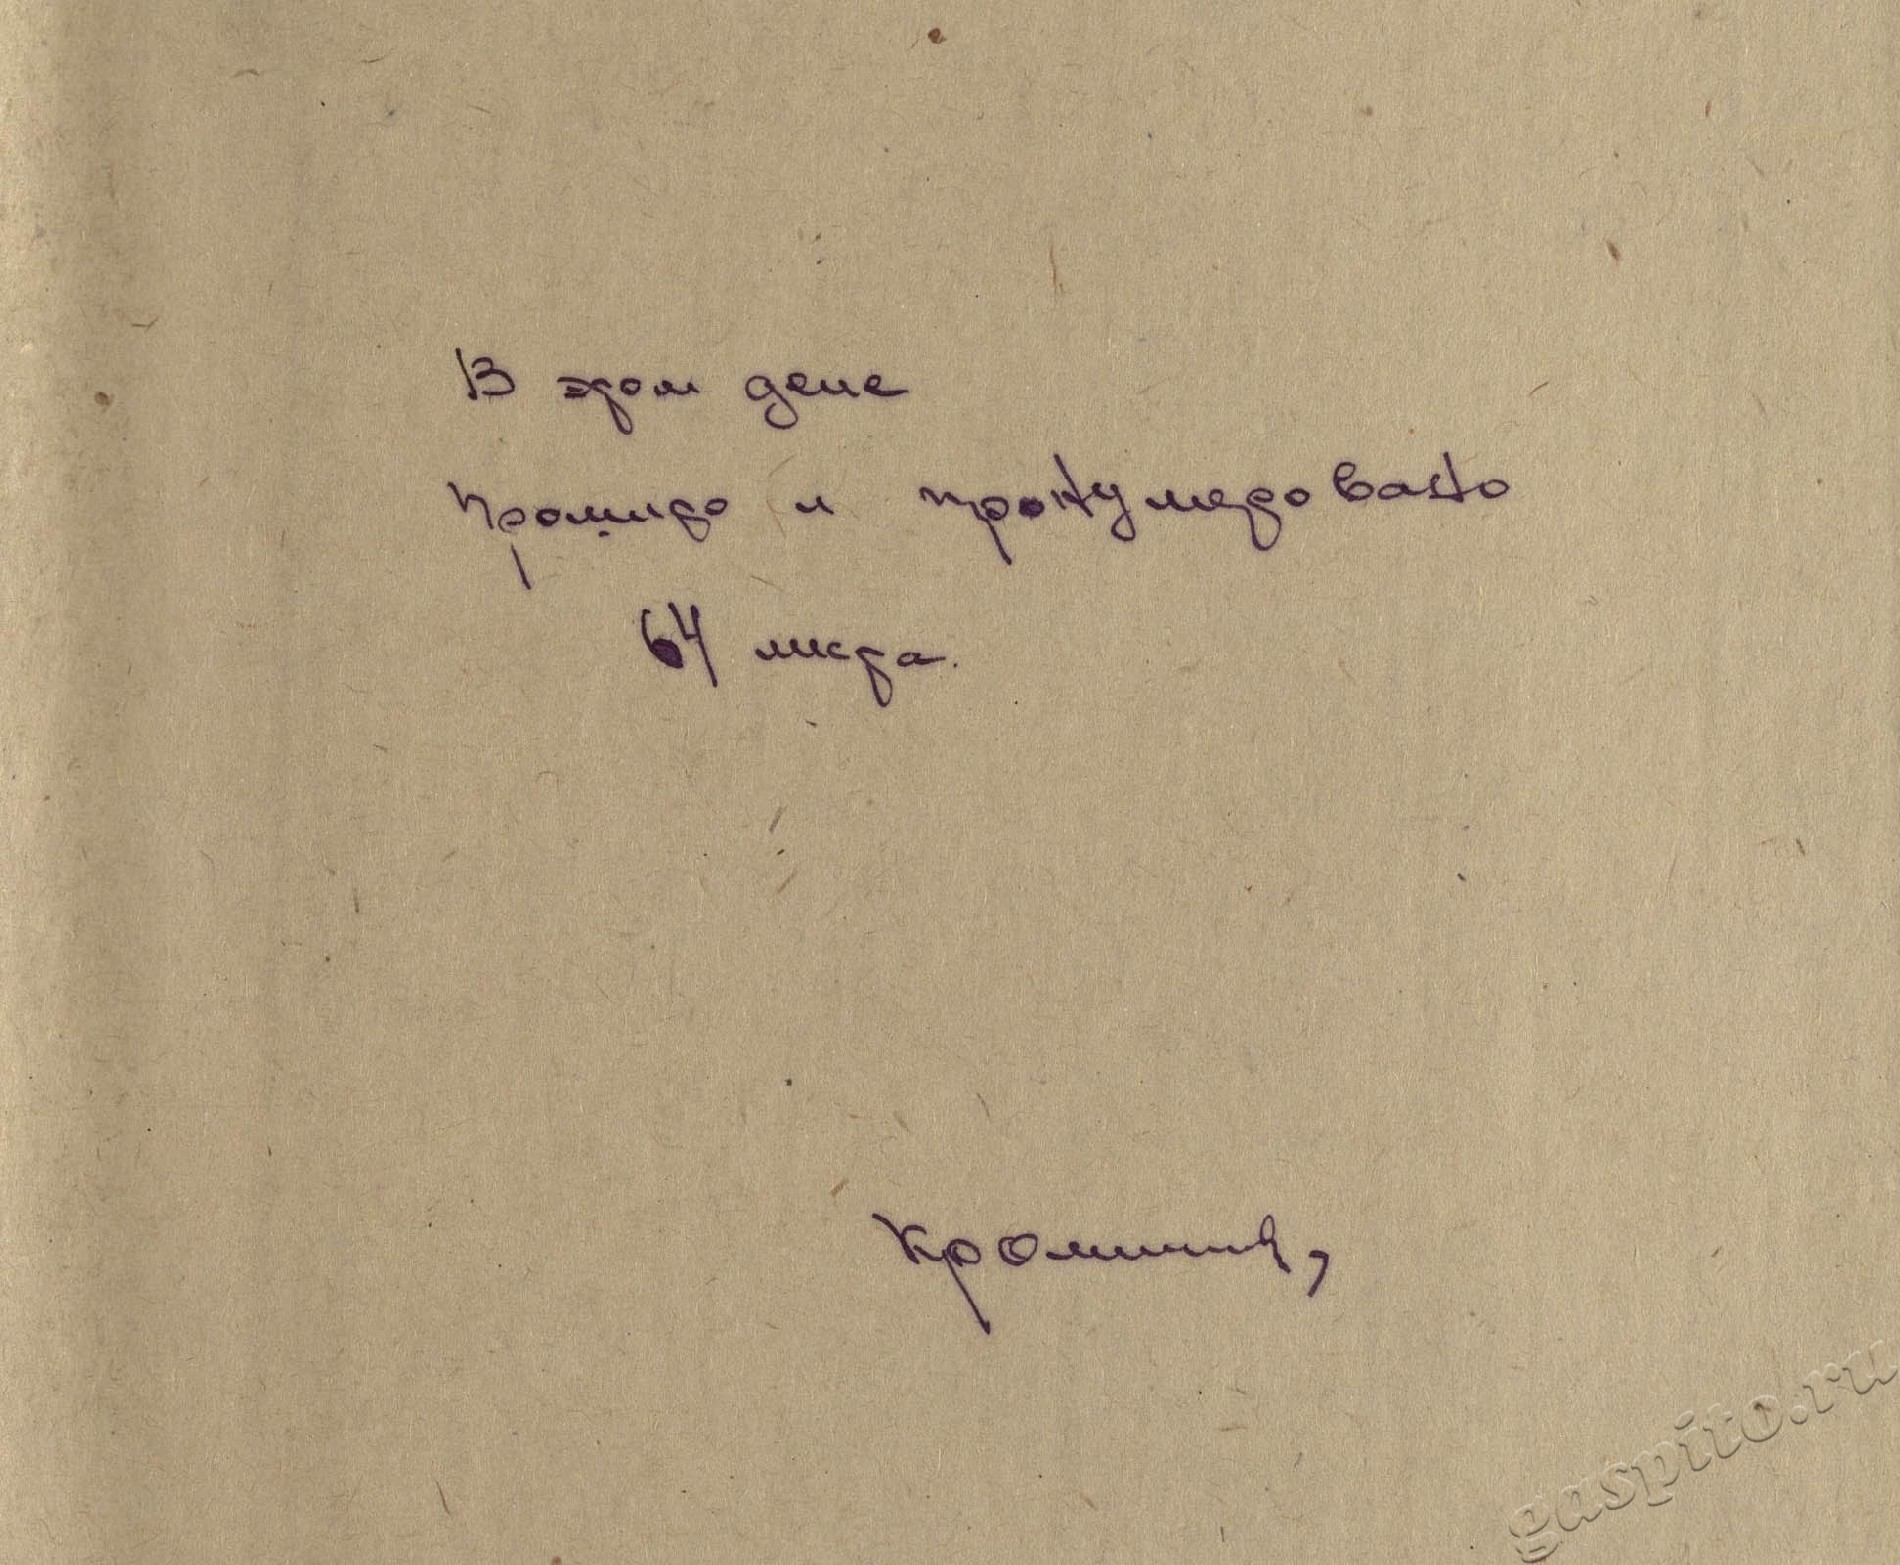 В этом деле
прошито и пронумеровано
64 листа.
gaspito.ru